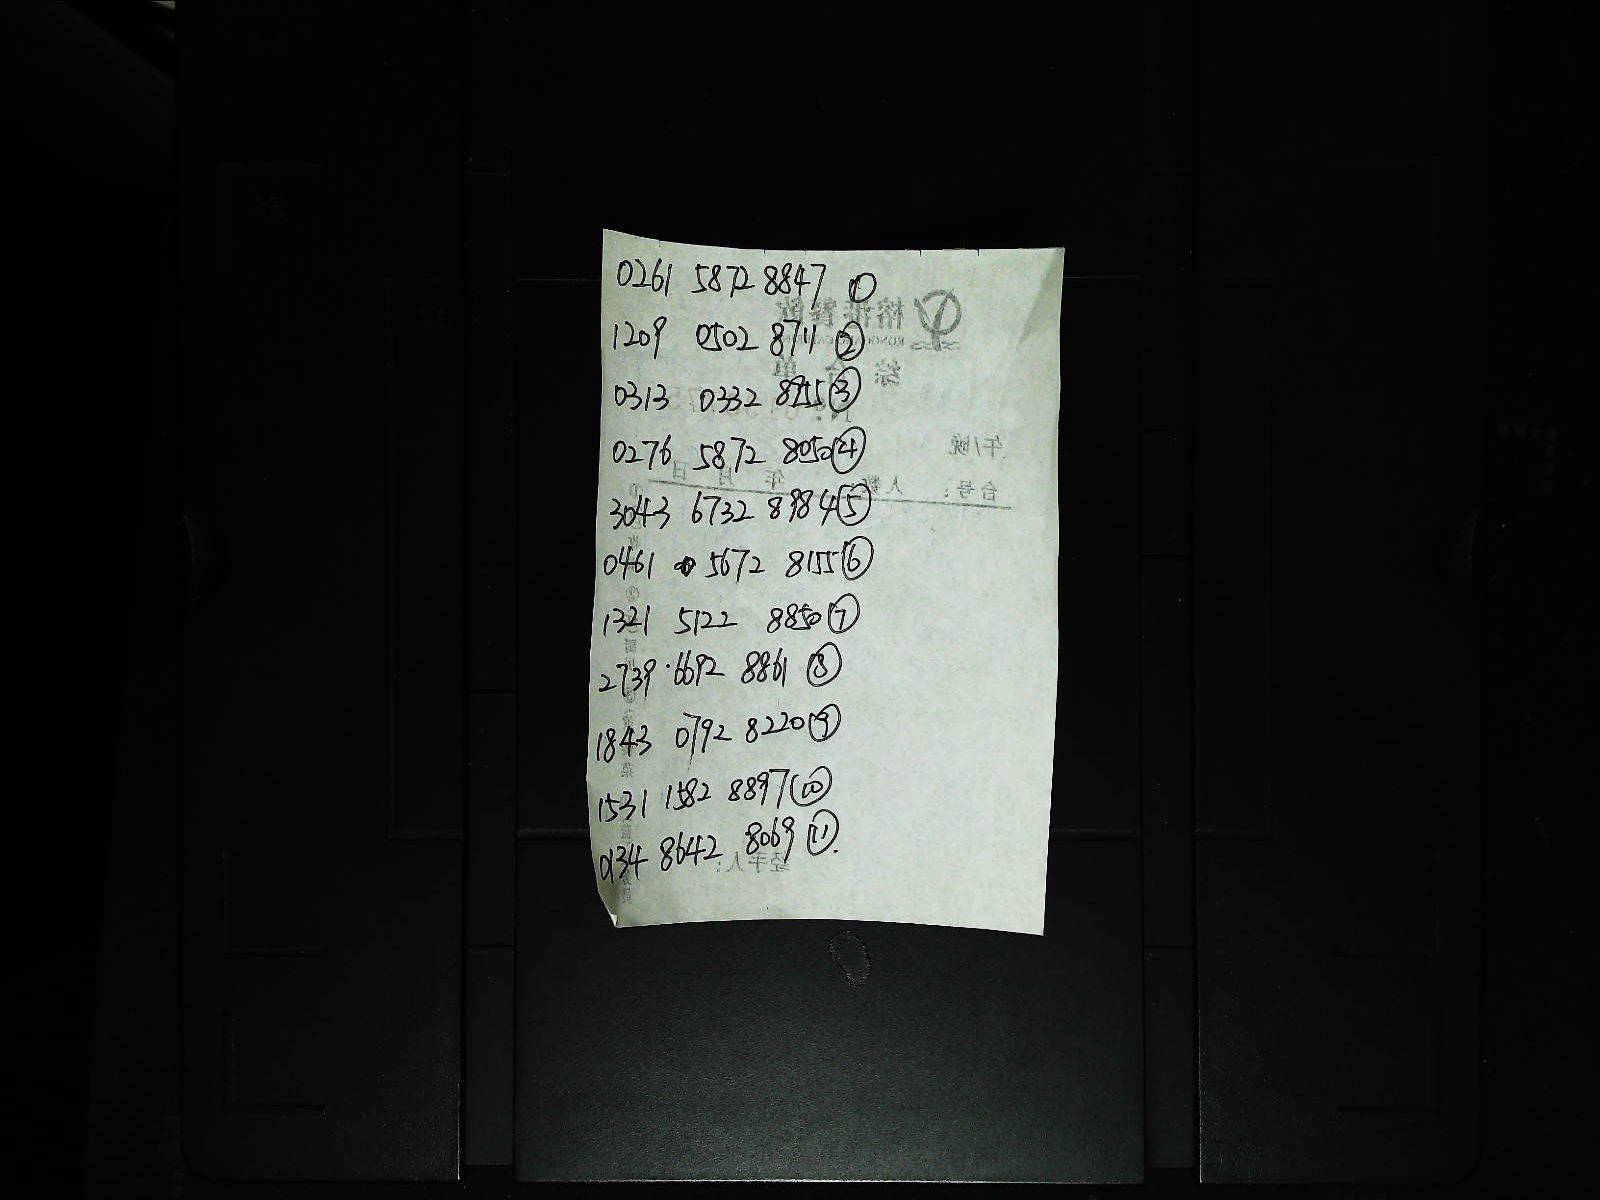 0261 5872 8847 ①
1209 0502 8711 ②
0313 0332 8955 ③
0276 5872 8050 ④
3043 6732 8984 ⑤
0461 5672 8155 ⑥
1321 5122 8850 ⑦
2739 6692 8861 ⑧
1843 0792 8220 ⑨
1531 1582 8897 ⑩
0134 8642 8069 ⑪
榕港餐飲
综合单
午/晚
台号: 人数: 年 月 日
经手人: